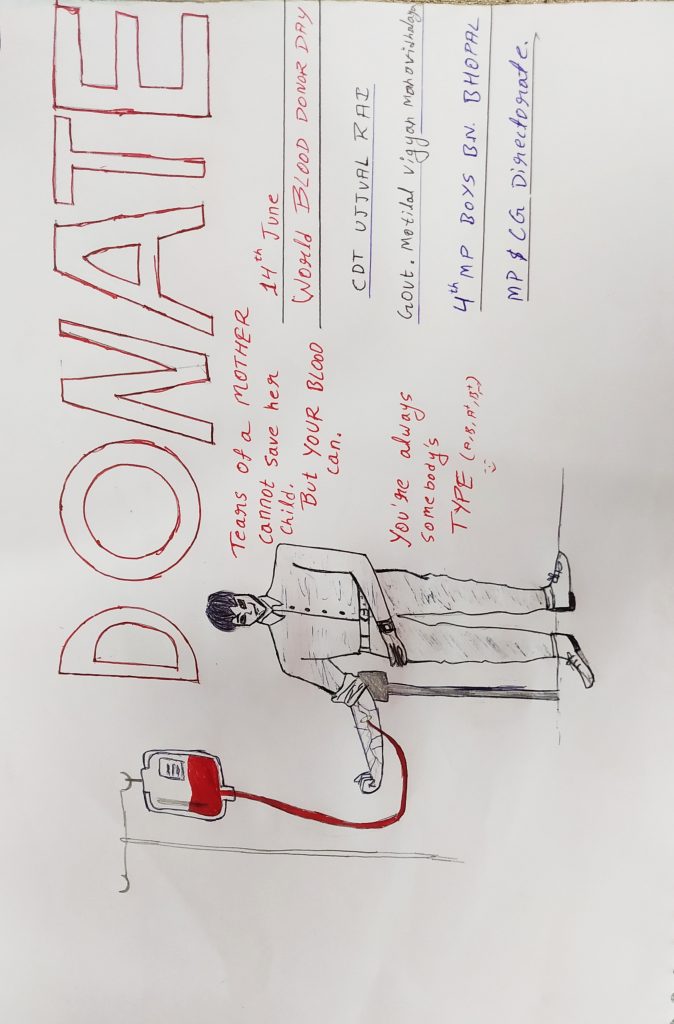 DONATE
Tears of a MOTHER
cannot save her
child.
But YOUR BLOOD
can.
14th June
World BLOOD DONOR DAY
CDT UJJVAL RAI
Govt. Motilal Vigyan Mahavidhalaya
You're always
somebody's
TYPE
4th MP BOYS BN. BHOPAL
MP & CG Directorate.